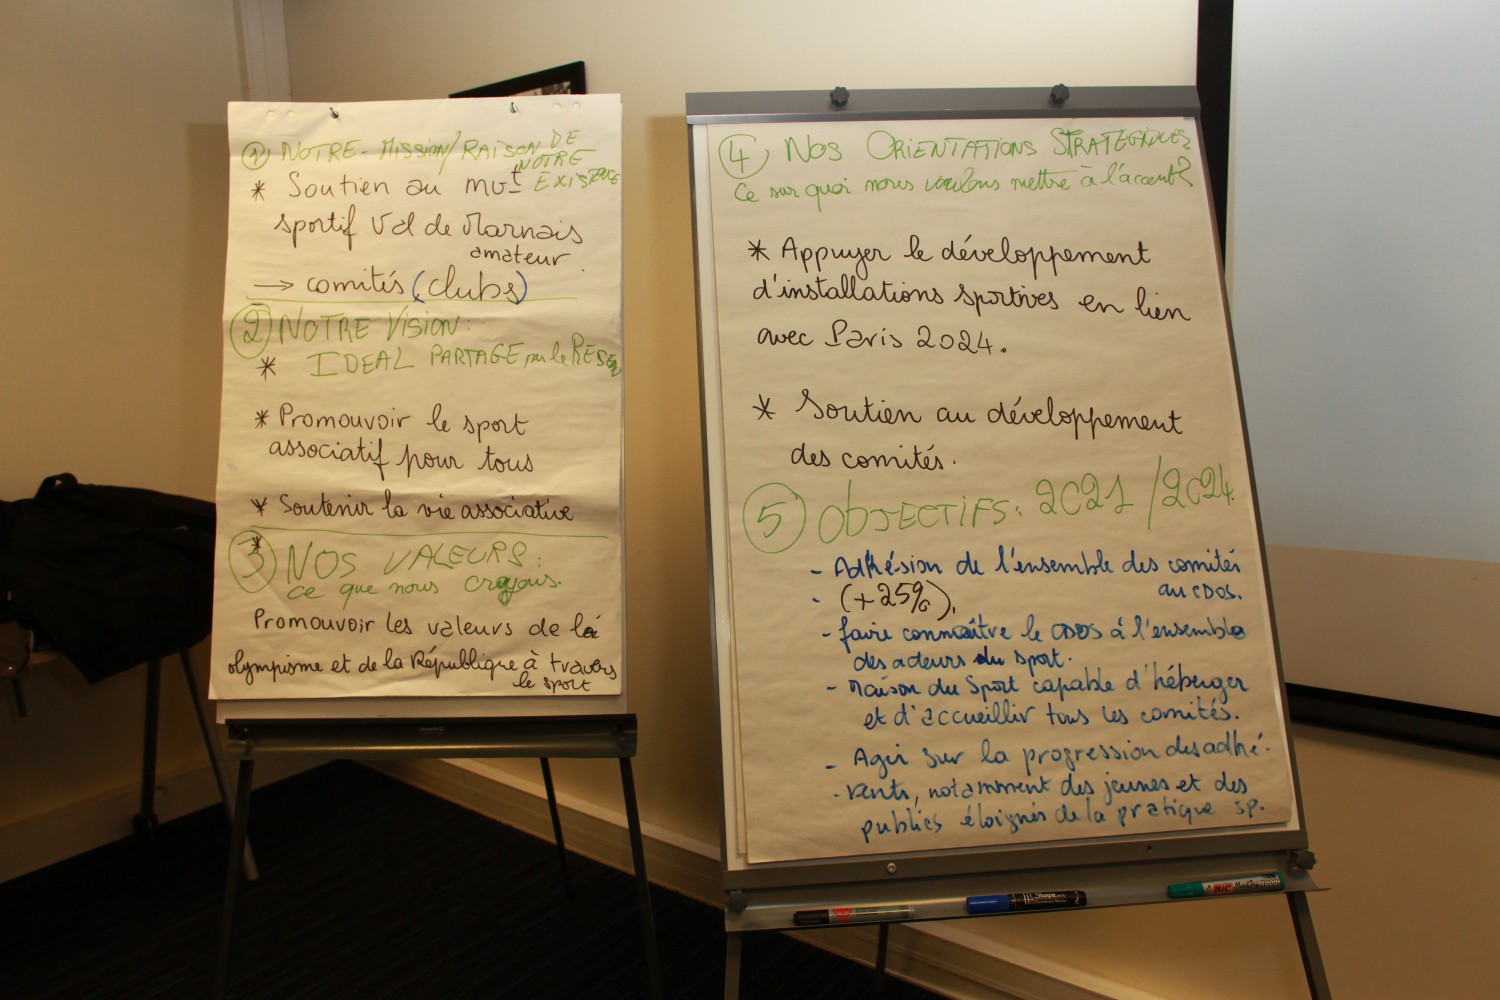 ① NOTRE-MISSION/RAISON DE
NOTRE
EXISTENCE
* Soutien au mvt
sportif Val de Marnais
amateur
→ comités (clubs)
② NOTRE VISION:
* IDEAL PARTAGE par le RESEAU
* Promouvoir le sport
associatif pour tous
* Soutenir la vie associative
* ③ NOS VALEURS:
ce que nous croyons.
Promouvoir les valeurs de la
olympisme et de la République à travers
le sport
④ NOS ORIENTATIONS STRATEGIQUES
Ce sur quoi nous voulons mettre à l'accent
* Appuyer le développement
d'installations sportives en lien
avec Paris 2024.
* Soutien au développement
des comités.
⑤ OBJECTIFS: 2021/2024
- Adhésion de l'ensemble des comités
au CDOS.
- (+25%).
- faire connaître le CDOS à l'ensemble
des acteurs du sport.
- Maison du Sport capable d'héberger
et d'accueillir tous les comités.
- Agir sur la progression des adhé-
- rents, notamment des jeunes et des
publics éloignés de la pratique sp.
BIC